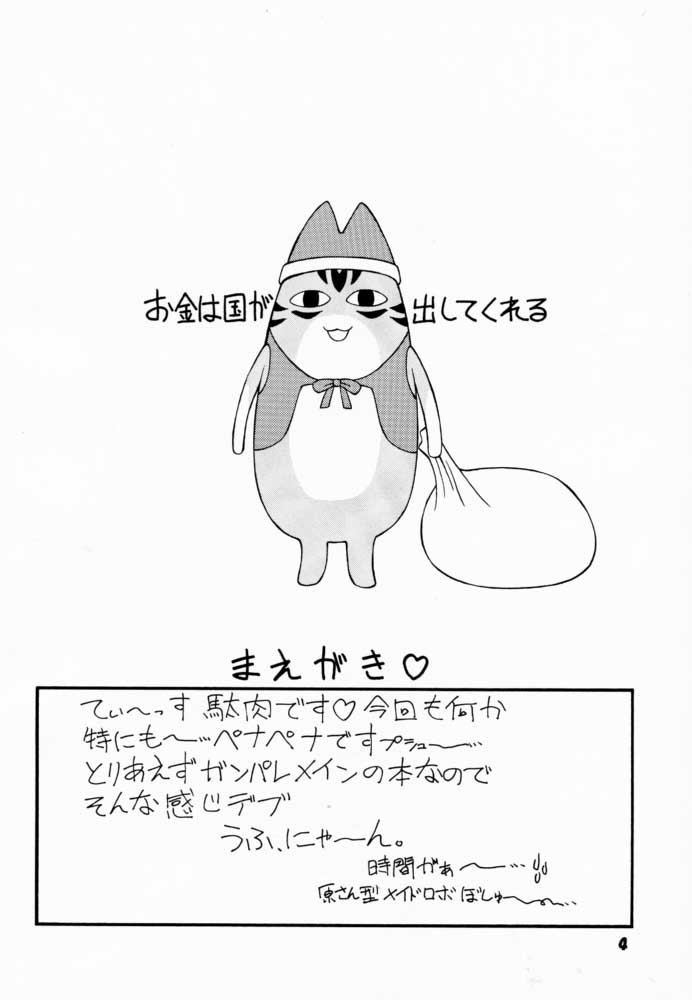 お金は国が 出してくれる
まえがき♡
てぃ～っす 駄肉です♡今回も何か
特にも～…ペナペナですプシュー～…
とりあえずガンパレメインの本なので
そんな感じデブ
うふ、にゃ～ん。
時間がぁ～…
原さん型メイドロボぼしゅ～…
4